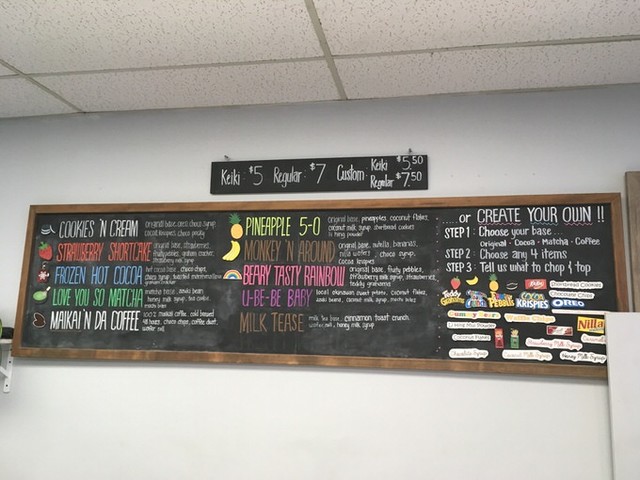 Keiki $5 Regular $7 Custom: Keiki $5.50
Regular $7.50
COOKIES 'N CREAM
original base, oreo, choco syrup,
cocoa krispies, choco pocky
STRAWBERRY SHORTCAKE
original base, strawberries,
fruity pebbles, graham cracker,
strawberry milk syrup
FROZEN HOT COCOA
choco chips,
graham cracker
LOVE YOU SO MATCHA
matcha base, azuki bean,
honey milk syrup,
MAIKAI 'N DA COFFEE
100% maikai coffee, cold brewed
48 hours, choco chips, coffee dust,
PINEAPPLE 5-0
original base, pineapples, coconut flakes,
coconut milk syrup, shortbread cookies
li hing powder
MONKEY 'N AROUND
original base, nutella, bananas,
nilla wafers, choco syrup,
cocoa krispies
BEARY TASTY RAINBOW
original base, fruity pebbles,
strawberry milk syrup, strawberries,
teddy grahams
U-BE-BE BABY
local okinawan sweet potato, coconut flakes,
azuki beans, coconut milk syrup,
MILK TEASE
milk tea base, cinnamon toast crunch,
honey milk syrup
...or CREATE YOUR OWN !!
STEP 1: Choose your base...
Original · Cocoa · Matcha · Coffee
STEP 2: Choose any 4 items
STEP 3: Tell us what to chop & top
Teddy Grahams
PEBBLES
COCOA KRISPIES
Shortbread Cookies
Chocolate Chips
OREO
Gummy Bears
Waffle Chips
Nilla
Li Hing Mui Powder
Coconut Flakes
Strawberry Milk Syrup
Chocolate Syrup
Coconut Milk Syrup
Honey Milk Syrup